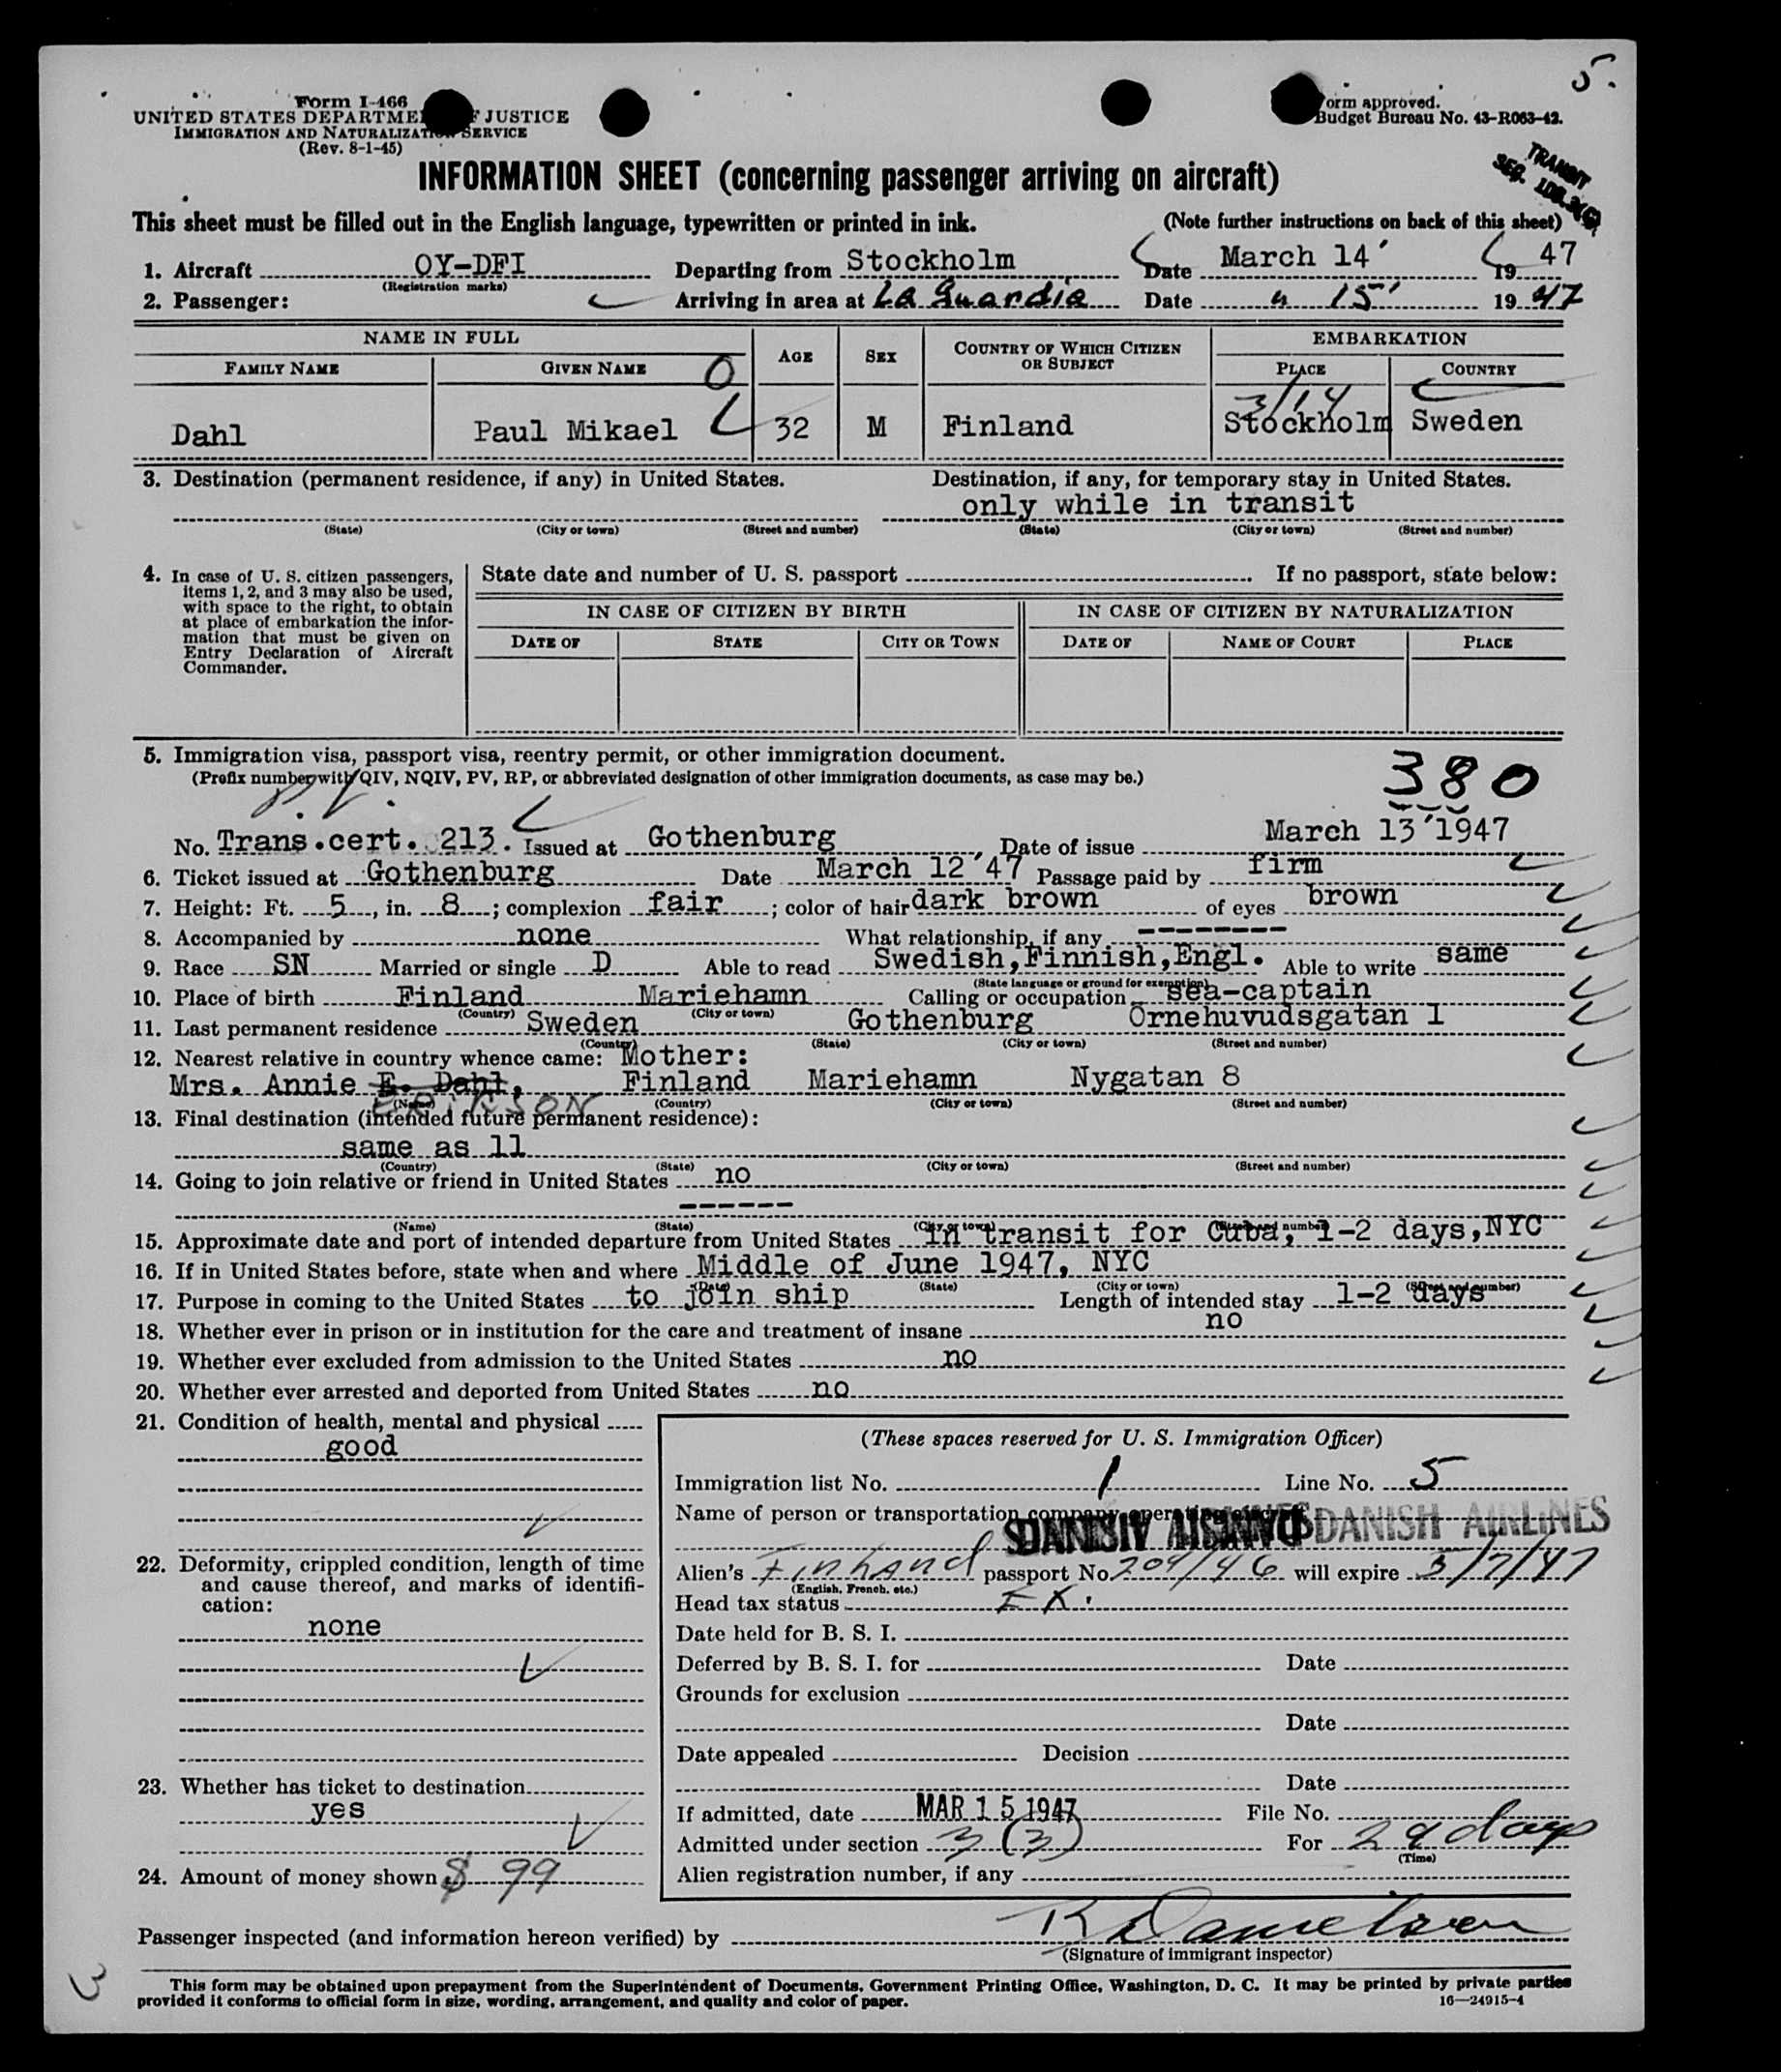 5.
Form I-466
UNITED STATES DEPARTME F JUSTICE
IMMIGRATION AND NATURALIZATION SERVICE
(Rev. 8-1-45)
Form approved.
Budget Bureau No. 43-R063-42.
TRANSIT
SEC.
INFORMATION SHEET (concerning passenger arriving on aircraft)
This sheet must be filled out in the English language, typewritten or printed in ink. (Note further instructions on back of this sheet)
1. Aircraft OY-DFI Departing from Stockholm Date March 14' 19 47
(Registration marks)
2. Passenger: Arriving in area at La Guardia Date " 15' 19 47
NAME IN FULL AGE SEX COUNTRY OF WHICH CITIZEN OR SUBJECT EMBARKATION
FAMILY NAME GIVEN NAME PLACE COUNTRY
O
3/14
Dahl Paul Mikael 32 M Finland Stockholm Sweden
3. Destination (permanent residence, if any) in United States. Destination, if any, for temporary stay in United States.
only while in transit
(State) (City or town) (Street and number) (State) (City or town) (Street and number)
4. In case of U. S. citizen passengers, items 1, 2, and 3 may also be used, with space to the right, to obtain at place of embarkation the information that must be given on Entry Declaration of Aircraft Commander.
State date and number of U. S. passport If no passport, state below:
IN CASE OF CITIZEN BY BIRTH IN CASE OF CITIZEN BY NATURALIZATION
DATE OF STATE CITY OR TOWN DATE OF NAME OF COURT PLACE
5. Immigration visa, passport visa, reentry permit, or other immigration document.
(Prefix number with QIV, NQIV, PV, RP, or abbreviated designation of other immigration documents, as case may be.)
380
P.V.
No. Trans.cert. 213. Issued at Gothenburg Date of issue March 13'1947
6. Ticket issued at Gothenburg Date March 12'47 Passage paid by firm
7. Height: Ft. 5, in. 8; complexion fair; color of hair dark brown of eyes brown
8. Accompanied by none What relationship, if any --------
9. Race SN Married or single D Able to read Swedish,Finnish,Engl. Able to write same
(State language or ground for exemption)
10. Place of birth Finland Mariehamn Calling or occupation sea-captain
(Country) (City or town)
11. Last permanent residence Sweden Gothenburg Ornehuvudsgatan 1
(Country) (State) (City or town) (Street and number)
12. Nearest relative in country whence came: Mother:
Mrs. Annie E. Dahl, Finland Mariehamn Nygatan 8
ERIKSON
(Name) (Country) (City or town) (Street and number)
13. Final destination (intended future permanent residence):
same as 11
(Country) (State) (City or town) (Street and number)
14. Going to join relative or friend in United States no
------
(Name) (State) (City or town) (Street and number)
15. Approximate date and port of intended departure from United States in transit for Cuba, 1-2 days,NYC
16. If in United States before, state when and where Middle of June 1947, NYC
(Date) (State) (City or town) (Street and number)
17. Purpose in coming to the United States to join ship Length of intended stay 1-2 days
18. Whether ever in prison or in institution for the care and treatment of insane no
19. Whether ever excluded from admission to the United States no
20. Whether ever arrested and deported from United States no
21. Condition of health, mental and physical
good
22. Deformity, crippled condition, length of time
and cause thereof, and marks of identifi-
cation:
none
23. Whether has ticket to destination
yes
24. Amount of money shown $ 99
(These spaces reserved for U. S. Immigration Officer)
Immigration list No. 1 Line No. 5
Name of person or transportation company operating aircraft
DANISH AIRLINES
Alien's Finland passport No. 209/46 will expire 5/7/47
(English, French, etc.)
Head tax status EX.
Date held for B. S. I.
Deferred by B. S. I. for Date
Grounds for exclusion
Date
Date appealed Decision
Date
If admitted, date MAR 15 1947 File No.
Admitted under section 3 (3) For 29 days
(Time)
Alien registration number, if any
Passenger inspected (and information hereon verified) by
(Signature of immigrant inspector)
This form may be obtained upon prepayment from the Superintendent of Documents, Government Printing Office, Washington, D. C. It may be printed by private parties
provided it conforms to official form in size, wording, arrangement, and quality and color of paper. 16—24915-4
3